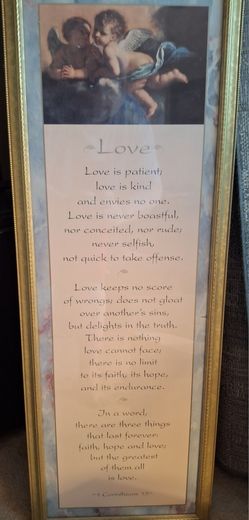 Love
Love is patient;
love is kind
and envies no one.
Love is never boastful,
nor conceited, nor rude;
never selfish,
not quick to take offense.
Love keeps no score
of wrongs; does not gloat
over another's sins,
but delights in the truth.
There is nothing
love cannot face;
there is no limit
to its faith, its hope,
and its endurance.
In a word,
there are three things
that last forever:
faith, hope and love;
but the greatest
of them all
is love.
Corinthians 13